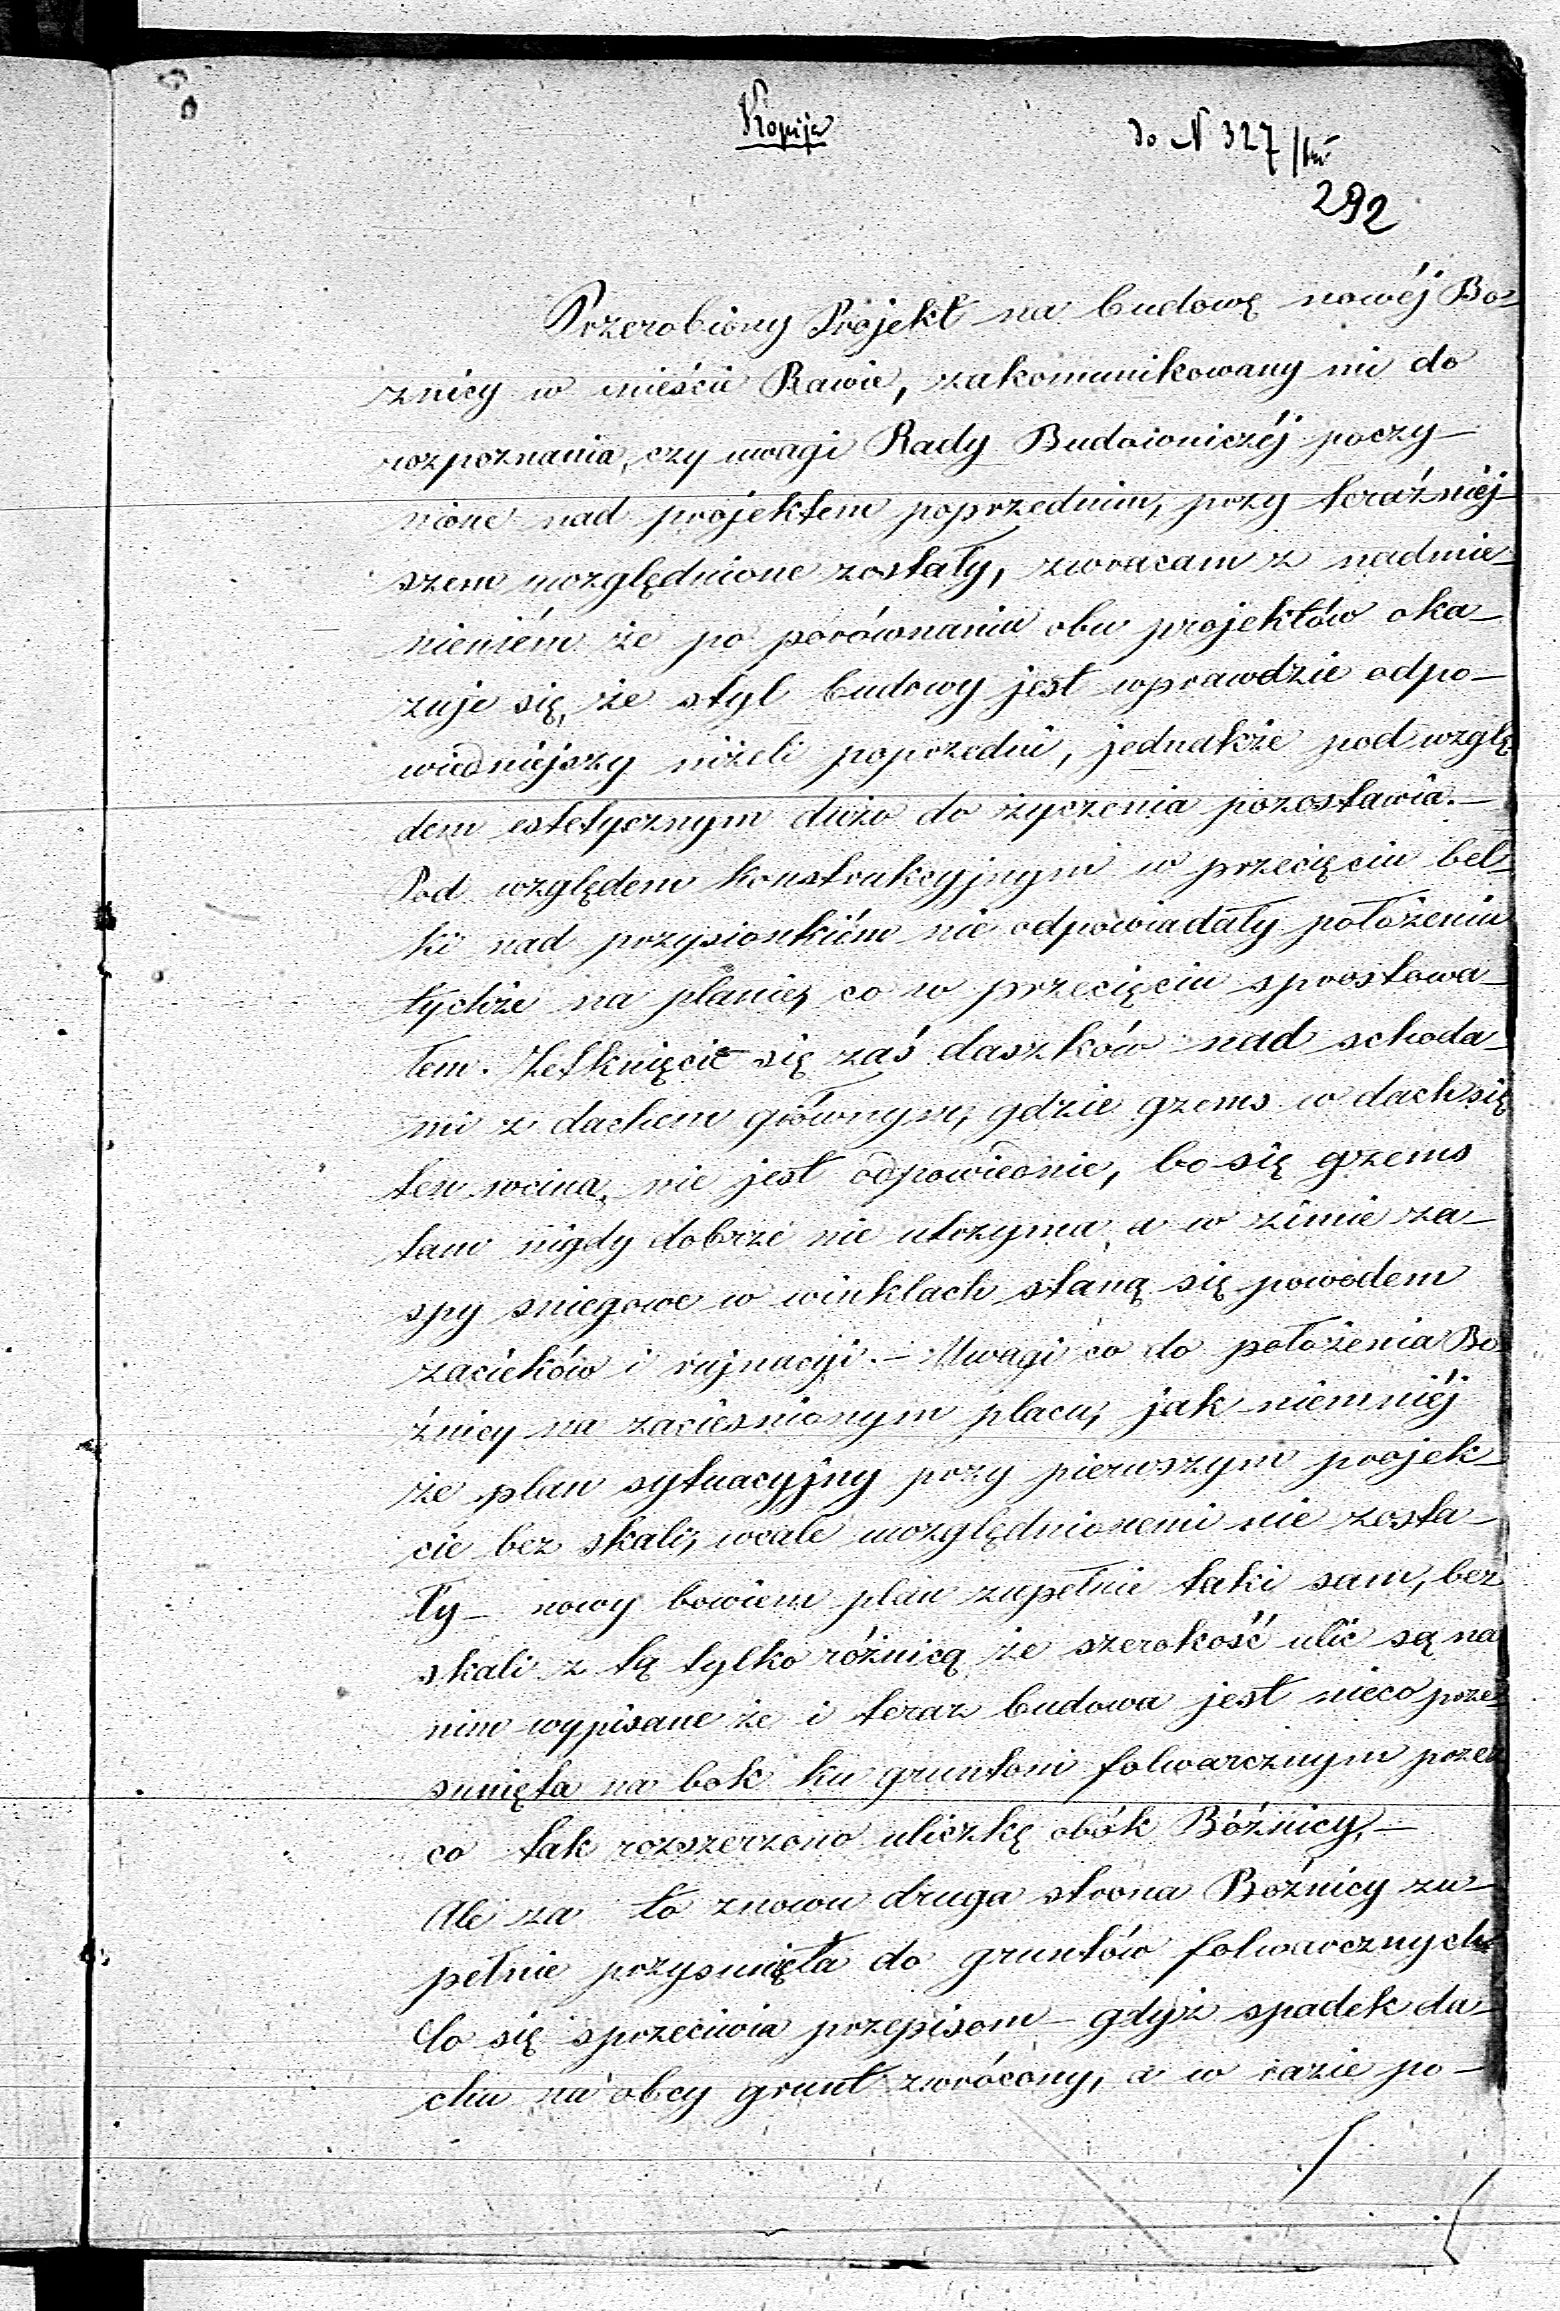 Kopija
do N 327
292
Przerobiony Projekt na budowę nowéj Bo-
znicy w mieście Rawie, zakomunikowany mi do
rozpoznania, czy uwagi Rady Budowniczéj poczy-
nione nad projektem poprzednim, przy teraźniéj-
szem uwzględnione zostały, zwracam z nadmie-
nieniém że po porównaniu obu projektów oka-
zuje się, że styl budowy jest wprawdzie odpo-
wiedniejszy niżeli poprzedni, jednakże pod wzglę
dem estetycznym dużo do życzenia pozostawia.-
Pod względem konstrukcyjnym w przecięciu bel-
ki nad przysionkiém nie odpowiadały położeniu
tychże na planie, co w przecięciu sprostowa-
łem. Zetknięcie się zaś daszków nad schoda-
mi z dachem głównym, gdzie gzems w dach się
ten wcina, nie jest odpowiednie, bo się gzems
tam nigdy dobrze nie utrzyma a w zimie za-
spy sniegowe w winklach staną się powodem
zacieków i rujnacyi.- Uwagi co do położenia Bo
źnicy na zaciesnionym placu, jak niemniéj
że plan sytuacyjny przy pierwszym projek-
cie bez skali, wcale uwzględnionemi nie zosta-
ły - nowy bowiem plan zupełnie taki sam, bez
skali z tą tylko różnicą że szerokość ulic są na
nim wypisane że i teraz budowa jest nieco prze-
sunięta na bok ku gruntom folwarcznym przez
co tak rozszerzono uliczkę obók Bóźnicy,-
Ale za to znowu druga strona Boźnicy zu-
pełnie przysunięta do gruntów folwarcznych
Co się sprzeciwia przepisom - gdyż spadek da-
chu na obcy grunt zwrócony, a w razie po-